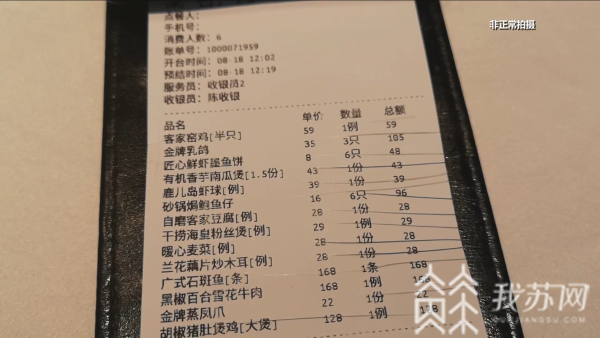 非正常拍摄
点餐人:
手机号:
消费人数: 6
账单号: 1000071959
开台时间: 08-18 12:02
预结时间: 08-18 12:19
服务员: 收银员2
收银员: 陈收银
品名 单价 数量 总额
客家窑鸡[半只] 59 1例 59
金牌乳鸽 35 3只 105
匠心鲜虾墨鱼饼 8 6只 48
有机香芋南瓜煲[1.5份] 43 1份 43
鹿儿岛虾球[例] 39 1份 39
砂锅焗鲍鱼仔 16 6只 96
自磨客家豆腐[例] 28 1份 28
干捞海皇粉丝煲[例] 29 1例 29
暖心麦菜[例] 28 1份 28
兰花藕片炒木耳[例] 28 1份 28
广式石斑鱼[条] 168 1条 168
黑椒百台雪花牛肉 168 1例 168
金牌蒸凤爪 22 1份 22
胡椒猪肚煲鸡[大煲] 128 1例 128
我苏网
OURJIANGSU.COM